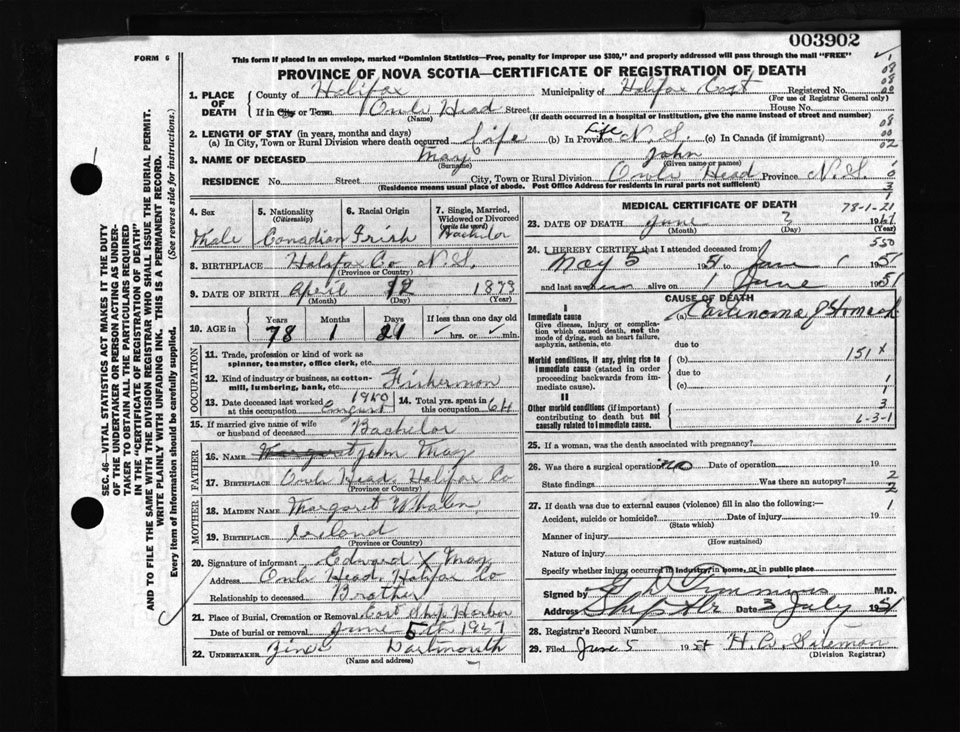 003902
FORM 6
This form if placed in an envelope, marked "Dominion Statistics—Free, penalty for improper use $300," and properly addressed will pass through the mail "FREE"
PROVINCE OF NOVA SCOTIA—CERTIFICATE OF REGISTRATION OF DEATH
SEC. 46—VITAL STATISTICS ACT MAKES IT THE DUTY
OF THE UNDERTAKER OR PERSON ACTING AS UNDER-
TAKER TO OBTAIN ALL THE PARTICULARS REQUIRED
IN THE "CERTIFICATE OF REGISTRATION OF DEATH"
AND TO FILE THE SAME WITH THE DIVISION REGISTRAR WHO SHALL ISSUE THE BURIAL PERMIT.
WRITE PLAINLY WITH UNFADING INK. THIS IS A PERMANENT RECORD.
Every item of Information should be carefully supplied. (See reverse side for instructions.)
1. PLACE OF DEATH County of Halifax Municipality of Halifax East Registered No.
(For use of Registrar General only)
If in City or Town Owls Head Street House No.
(Name) (If death occurred in a hospital or institution, give the name instead of street and number)
2. LENGTH OF STAY (in years, months and days)
(a) In City, Town or Rural Division where death occurred Life (b) In Province Life N.S. (c) In Canada (if immigrant)
3. NAME OF DECEASED May John
(Surname) (Given name or names)
RESIDENCE No. Street City, Town or Rural Division Owls Head Province N.S.
(Residence means usual place of abode. Post Office Address for residents in rural parts not sufficient)
4. Sex Male
5. Nationality (Citizenship) Canadian
6. Racial Origin Irish
7. Single, Married, Widowed or Divorced (write the word) Bachelor
8. BIRTHPLACE Halifax Co N.S.
(Province or Country)
9. DATE OF BIRTH April 12 1873
(Month) (Day) (Year)
10. AGE in Years Months Days If less than one day
78 1 21 ✓ hrs. or ✓ min.
OCCUPATION
11. Trade, profession or kind of work as spinner, teamster, office clerk, etc.
12. Kind of industry or business, as cotton-mill, lumbering, bank, etc. Fisherman
13. Date deceased last worked at this occupation August 1950 14. Total yrs. spent in this occupation 64
15. If married give name of wife or husband of deceased Bachelor
FATHER
16. NAME Margaret John May
17. BIRTHPLACE Owls Head, Halifax Co
(Province or Country)
MOTHER
18. MAIDEN NAME Margaret Whalen
19. BIRTHPLACE Ireland
(Province or Country)
20. Signature of informant Edward X May
Address Owls Head, Halifax Co
Relationship to deceased Brother
21. Place of Burial, Cremation or Removal East Ship Harbor
Date of burial or removal June 5th 1951
22. UNDERTAKER Zinc Dartmouth
(Name and address)
MEDICAL CERTIFICATE OF DEATH
78-1-21
23. DATE OF DEATH June 3 1951
(Month) (Day) (Year)
550
24. I HEREBY CERTIFY that I attended deceased from
May 5 1951 June 1 1951
and last saw him alive on 1 June 1951
CAUSE OF DEATH
I
Immediate cause (a) Carcinoma of Stomach
Give disease, injury or complication which caused death, not the mode of dying, such as heart failure, asphyxia, asthenia, etc.
due to
151 x
Morbid conditions, if any, giving rise to immediate cause (stated in order proceeding backwards from immediate cause). (b)
due to
(c)
II
Other morbid conditions (if important) contributing to death but not causally related to immediate cause.
6-3-1
25. If a woman, was the death associated with pregnancy?
26. Was there a surgical operation no Date of operation 19
State findings Was there an autopsy?
27. If death was due to external causes (violence) fill in also the following:
Accident, suicide or homicide? Date of injury 19
(State which)
Manner of injury
(How sustained)
Nature of injury
Specify whether injury occurred in industry, in home, or in public place
Signed by M.D.
Address Ship Hbr Date 3 July 1951
28. Registrar's Record Number
29. Filed June 5 1951
(Division Registrar)